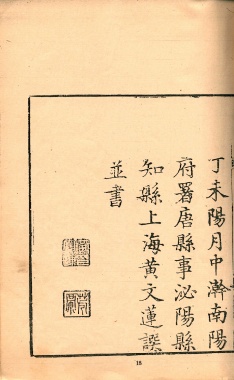 丁未陽月中澣南陽
府署唐縣事泌陽縣
知縣上海黃文蓮譔
並書
18